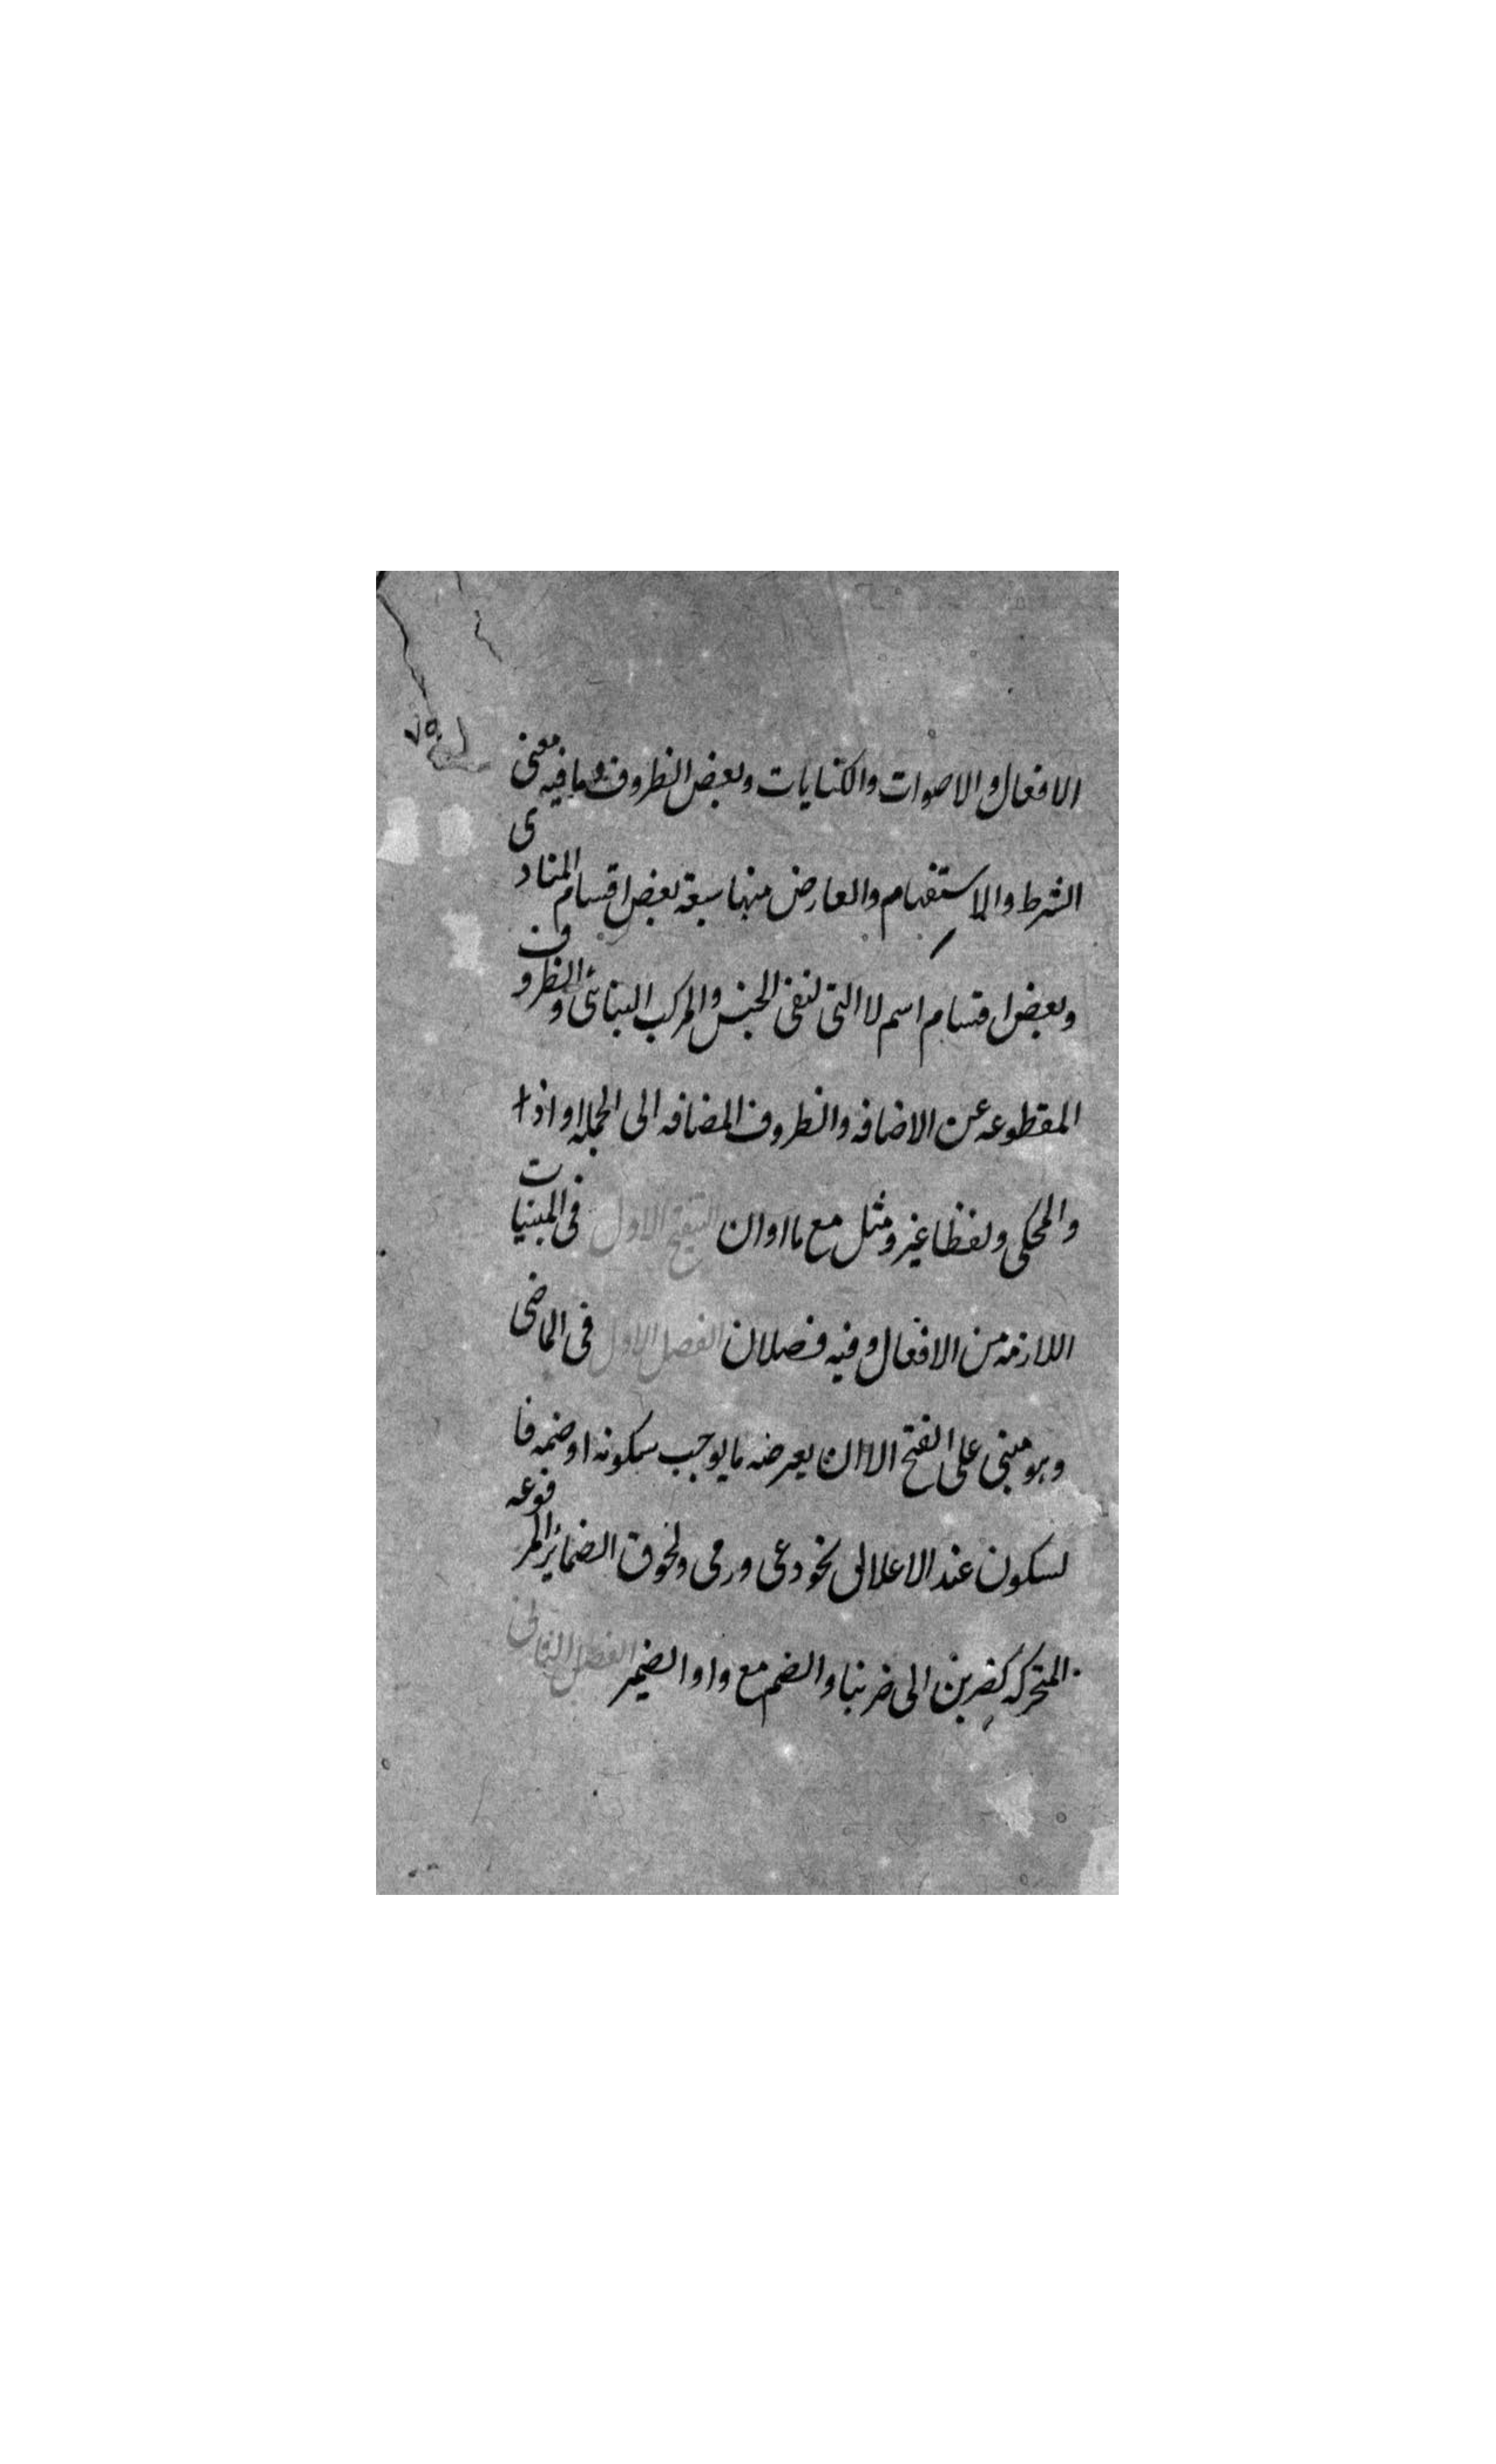 الافعال والاصوات والكنايات وبعض الظروف وما فيه معنى
الشرط والاستفهام والعارض منها سبعة بعض اقسام المنادى
وبعض اقسام اسم لا التى لنفى الجنس والمركب البنائى والظروف
المقطوعه عن الاضافه والظروف المضافه الى الجمله او اذا
والمحكى ولفظا غير ومثل مع ما او ان الاول فى المبنيات
اللازمه من الافعال وفيه فصلان الفصل الاول فى الماضى
وهو مبنى على الفتح الا ان يعرضه ما يوجب سكونه او ضمه فا
لسكون عند الاعلال نحو دعى ورمى ولحوق الضمائر المرفوعه
المتحركه كضربن الى ضربنا والضم مع واو الضمير الفصل الثانى